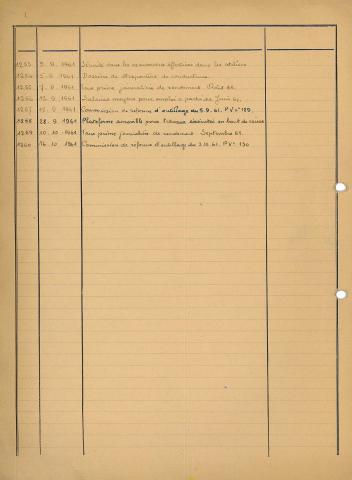 1253 5.9.1961 Sécurité dans les manœuvres effectuées dans les ateliers
1254 5.9.1961 Dessins de dispositifs de conducteurs
1255 7.9.1961 Taux prime journalière de rendement Août 61.
1256 13.9.1961 Salaires moyens pour emploi à partir de Juin 61.
1257 15.9.1961 Commission de réforme d'outillage du 5.9.61. P.V n° 129.
1258 28.9.1961 Plateforme amovible pour travaux exécutés en haut de caisse
1259 10.10.1961 Taux prime journalière de rendement Septembre 61.
1260 16.10.1961 Commission de réforme d'outillage du 3.10.61. P.V n° 130